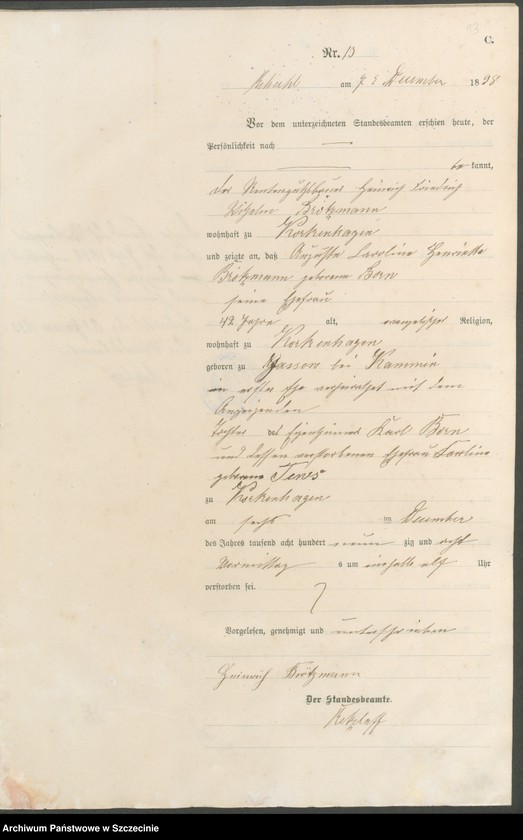 C.
Nr. 13
am 7 t December 1898
Vor dem unterzeichneten Standesbeamten erschien heute, der
Persönlichkeit nach
bekannt,
der Rentengutsbauer Heinrich Friedrich
Wilhelm Brötzmann
wohnhaft zu Korkenhagen
und zeigte an, daß Auguste Caroline Henriette
Brötzmann geborene Born
seine Ehefrau
42 Jahre alt, evangelischer Religion,
wohnhaft zu Korkenhagen
geboren zu bei Kammin
in erster Ehe verheirathet mit dem
Anzeigenden
Tochter des Eigenthümers Karl Born
und dessen verstorbenen Ehefrau Caroline
geborene Tews
zu Korkenhagen
am sechs ten December
des Jahres tausend acht hundert neun zig und acht
Vormittag s um einhalb elf Uhr
verstorben sei.
Vorgelesen, genehmigt und unterschrieben
Heinrich Brötzmann
Der Standesbeamte.
Retzlaff
Archiwum Państwowe w Szczecinie